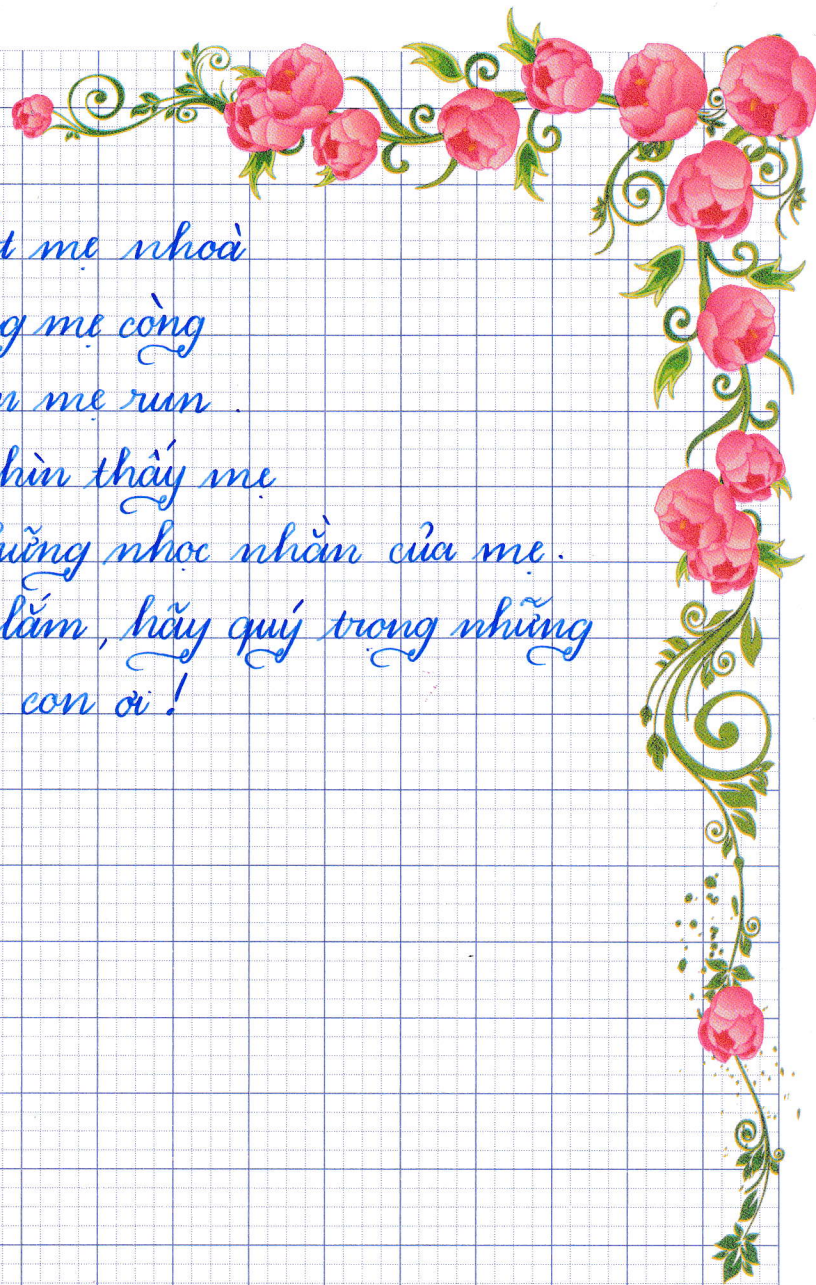 t mẹ nhoà
g mẹ còng
n mẹ run .
hìn thấy mẹ
ững nhọc nhằn của mẹ.
lắm, hãy quý trọng những
con ơi !